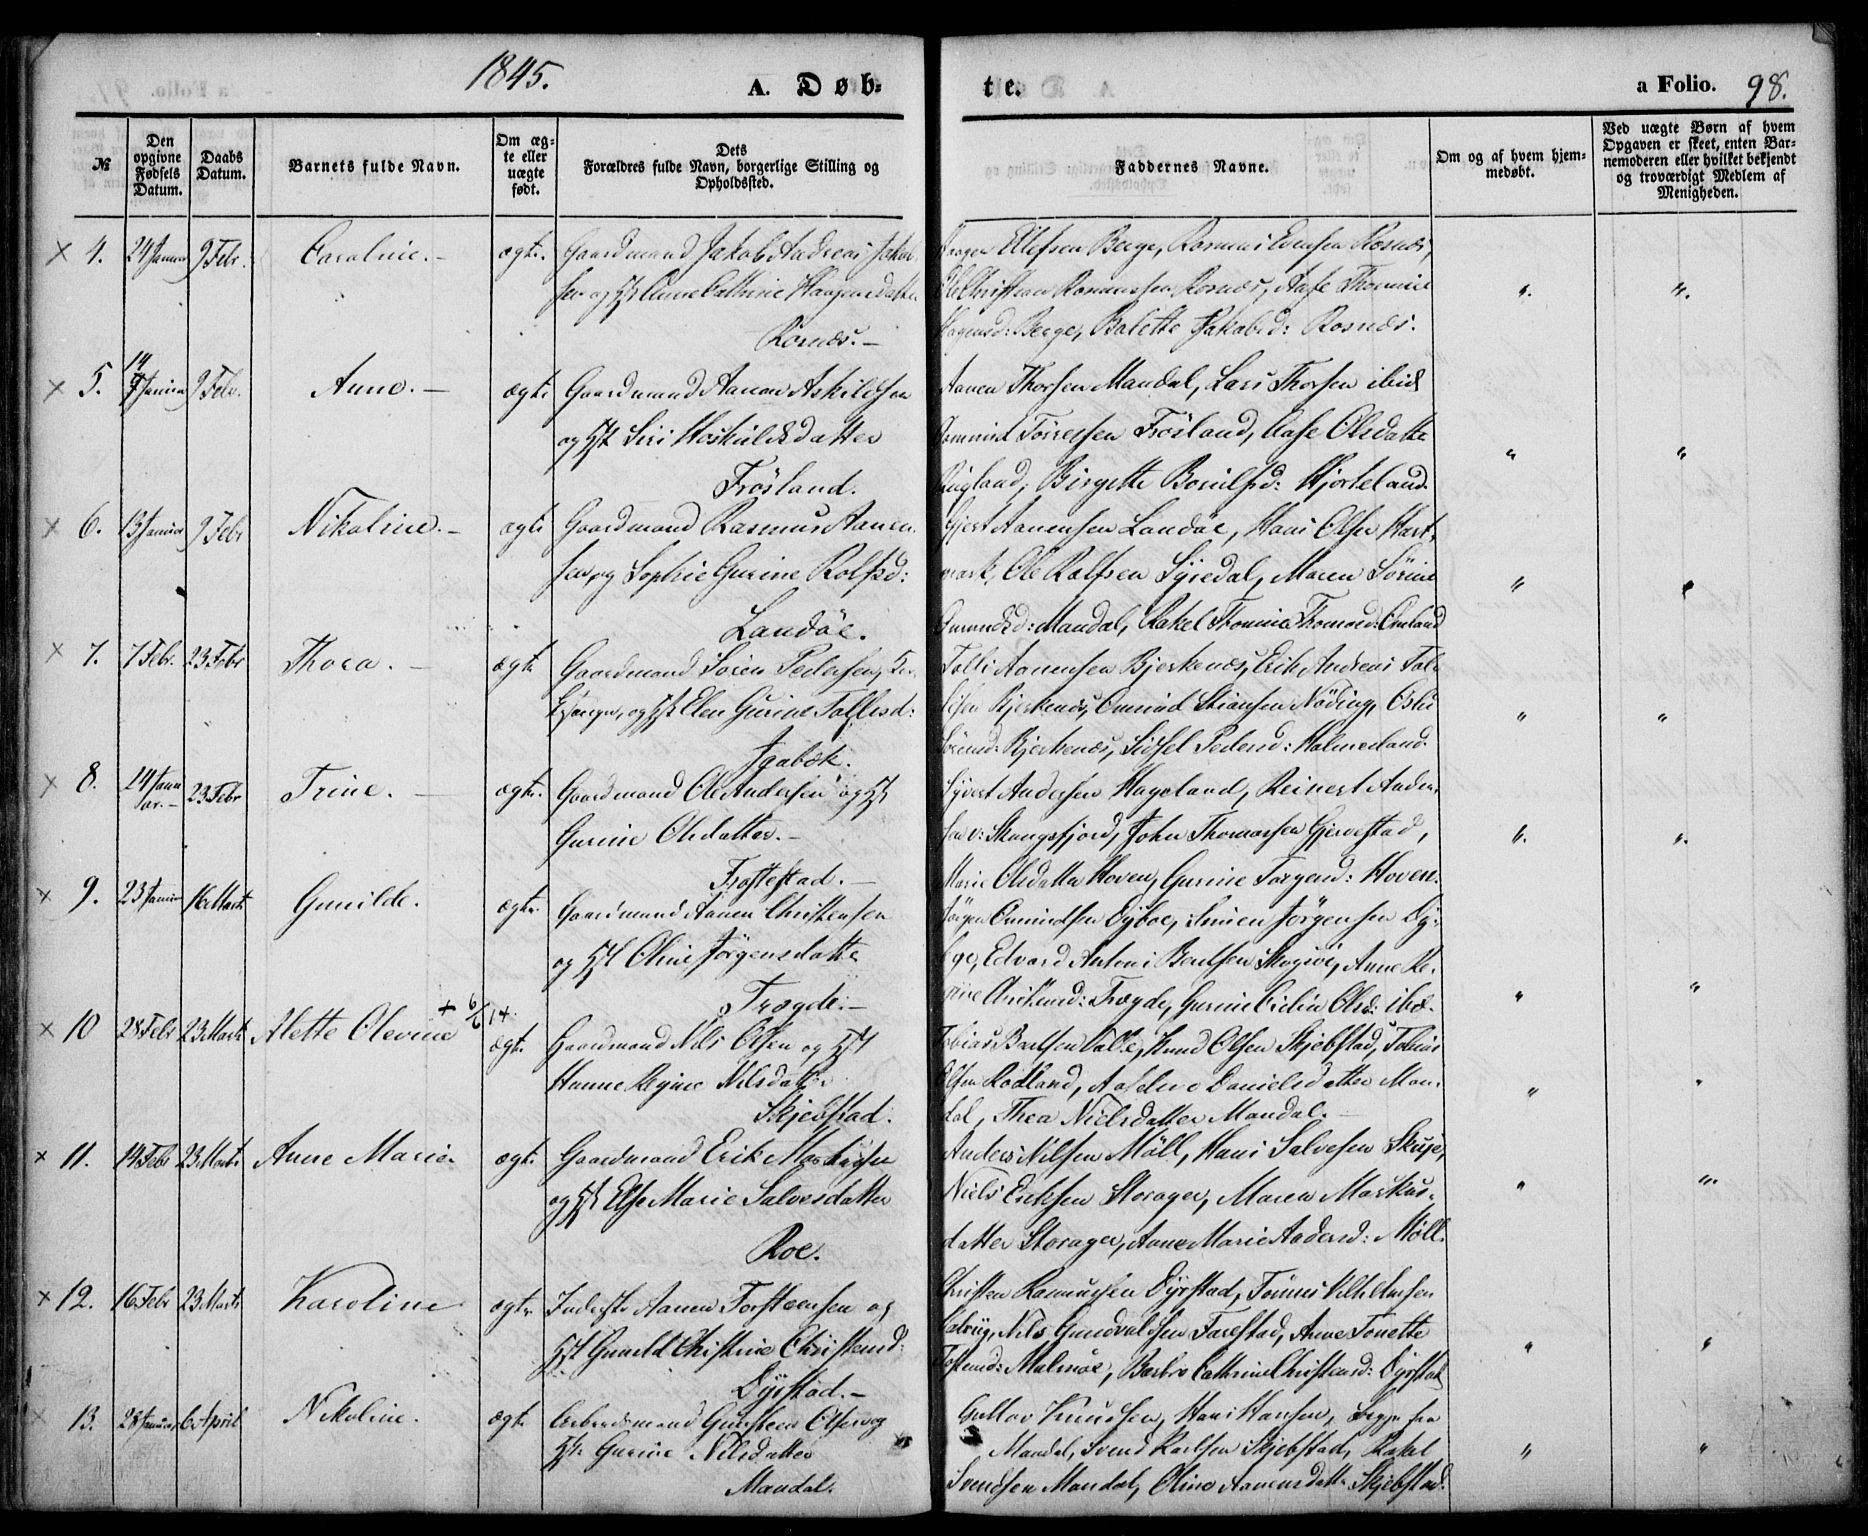 1845.
A. Døb-
te.
a Folio. 98.
№
Den opgivne Fødsels Datum.
Daabs Datum.
Barnets fulde Navn.
Om ægte eller uægte født.
Dets Forældres fulde Navn, borgerlige Stilling og Opholdssted.
Faddernes Navne.
Om og af hvem hjemmedøbt.
Ved uægte Børn af hvem Opgaven er skeet, enten Barnemoderen eller hvilket bekjendt og troværdigt Medlem af Menigheden.
× 4. 24 Januar 9 Febr. Caroline. – ægte. Gaardmand Jakob Andreas Jakob
sen og Hst Anne Cathrine Haagensdatter
Rosnæs. –
Ellefsen Berge, Rasmus Evensen Rosnæs,
Ole Christian Rasmussen Rosnæs, Aase Thomine
Hagensd: Berge, Balette Jakobsd: Rosnæs.
× 5. 14 Januar 9 Febr. Anne. – ægte Gaardmand Aanen Askildsen
og Hst Siri Hoskuldsdatter
Frøsland.
Aanen Thorsen Mandal, Lars Thorsen ibid
Tørresen Frøsland, Aase Olsdatter
Birgitte Bovilsd: Hjorteland.
× 6. 13 Januar 9 Febr Nikoline. – ægte Gaardmand Rasmus Aanen
sen og Sophie Gurine Rolfsd:
Landøe.
Gjert Aanensen Landøe, Hans Olsen Hart
mark, Ole Rolfsen Syredal, Maren Sørine
Mandal, Rakel Thomine Thomasd:
× 7. 7 Febr. 23 Febr Thora. – ægte Gaardmand Søren Pedersen,
og Hst Elen Gurine Tollesd:
Igabæk.
Tolli Aanensen Bjerkenæs, Erik Andreas Tol
lisen Bjerkenæs, Omund Stiansen Nøding,
Bjerkenæs, Sidsel Pedersd: Holmesland.
× 8. 14 Janu
ar. – 23 Febr Trine. – ægte. Gaardmand Ole Andersen og Hst
Gurine Olsdatter. –
Frostestad. –
Syvert Andersen Hageland, Reinert Ander
sen v: Skongsfjord, John Thomassen Gjervestad,
Marie Olsdatter Hoven, Gurine Torgensd: Hoven.
× 9. 23 Januar 16 Marts Gunilde. ægte. Gaardmand Aanen Christensen
og Hst Oline Jørgensdatter
Trægde. –
Jørgen Omundsen Dyboe, Simen Jørgensen Dy-
boe, Edvard Antoni Bentsen Skogsøe, Anne Re-
gine Trægde, Gurine Olsd: ibd.
× 10 28 Febr 23 Marts Alette Olevine + 6/6 14. ægte. Gaardmand Nils Olsen og Hst
Hanne Regine Nilsdatter
Skjebstad.
Tobias Bentsen Valle, Knud Olsen Skjebstad, Tobias
Olsen Rødland, Danielsdatter Man-
dal, Thea Nielsdatter Mandal. –
× 11. 14 Febr 23 Marts Anne Marie. ægte. Gaardmand Erik Markusen
og Hst Else Marie Salvesdatter
Roe.
Anders Nilsen Møll, Hans Salvesen Skuje,
Niels Eriksen Storager, Maren Markus-
datter Storager, Anne Marie Andersd: Møll.
× 12. 16 Febr 23 Marts Karoline ægte. Inderste Aanen Torsteensen og
Hst Gunild Christine Christensd:
Dyrstad. –
Christen Rasmussen Dyrstad, Tønnes Vilhelmsen
Nils Gundvaldsen Farestad, Anne Tonette
Malmøe, Barbro Cathrine Christensd: Dyrstad
13. 28 Januar 6 April Nikoline. ægte. Arbeidsmand Gunsteen Olsen og
Hst: Gurine Nilsdatter
Mandal.
Gullov Knudsen, Hans Hansen, begge fra
Mandal, Svend Karlsen Skjebstad, Rakel
Svendsen Mandal, Oline Aanensdatt: Skjebstad.